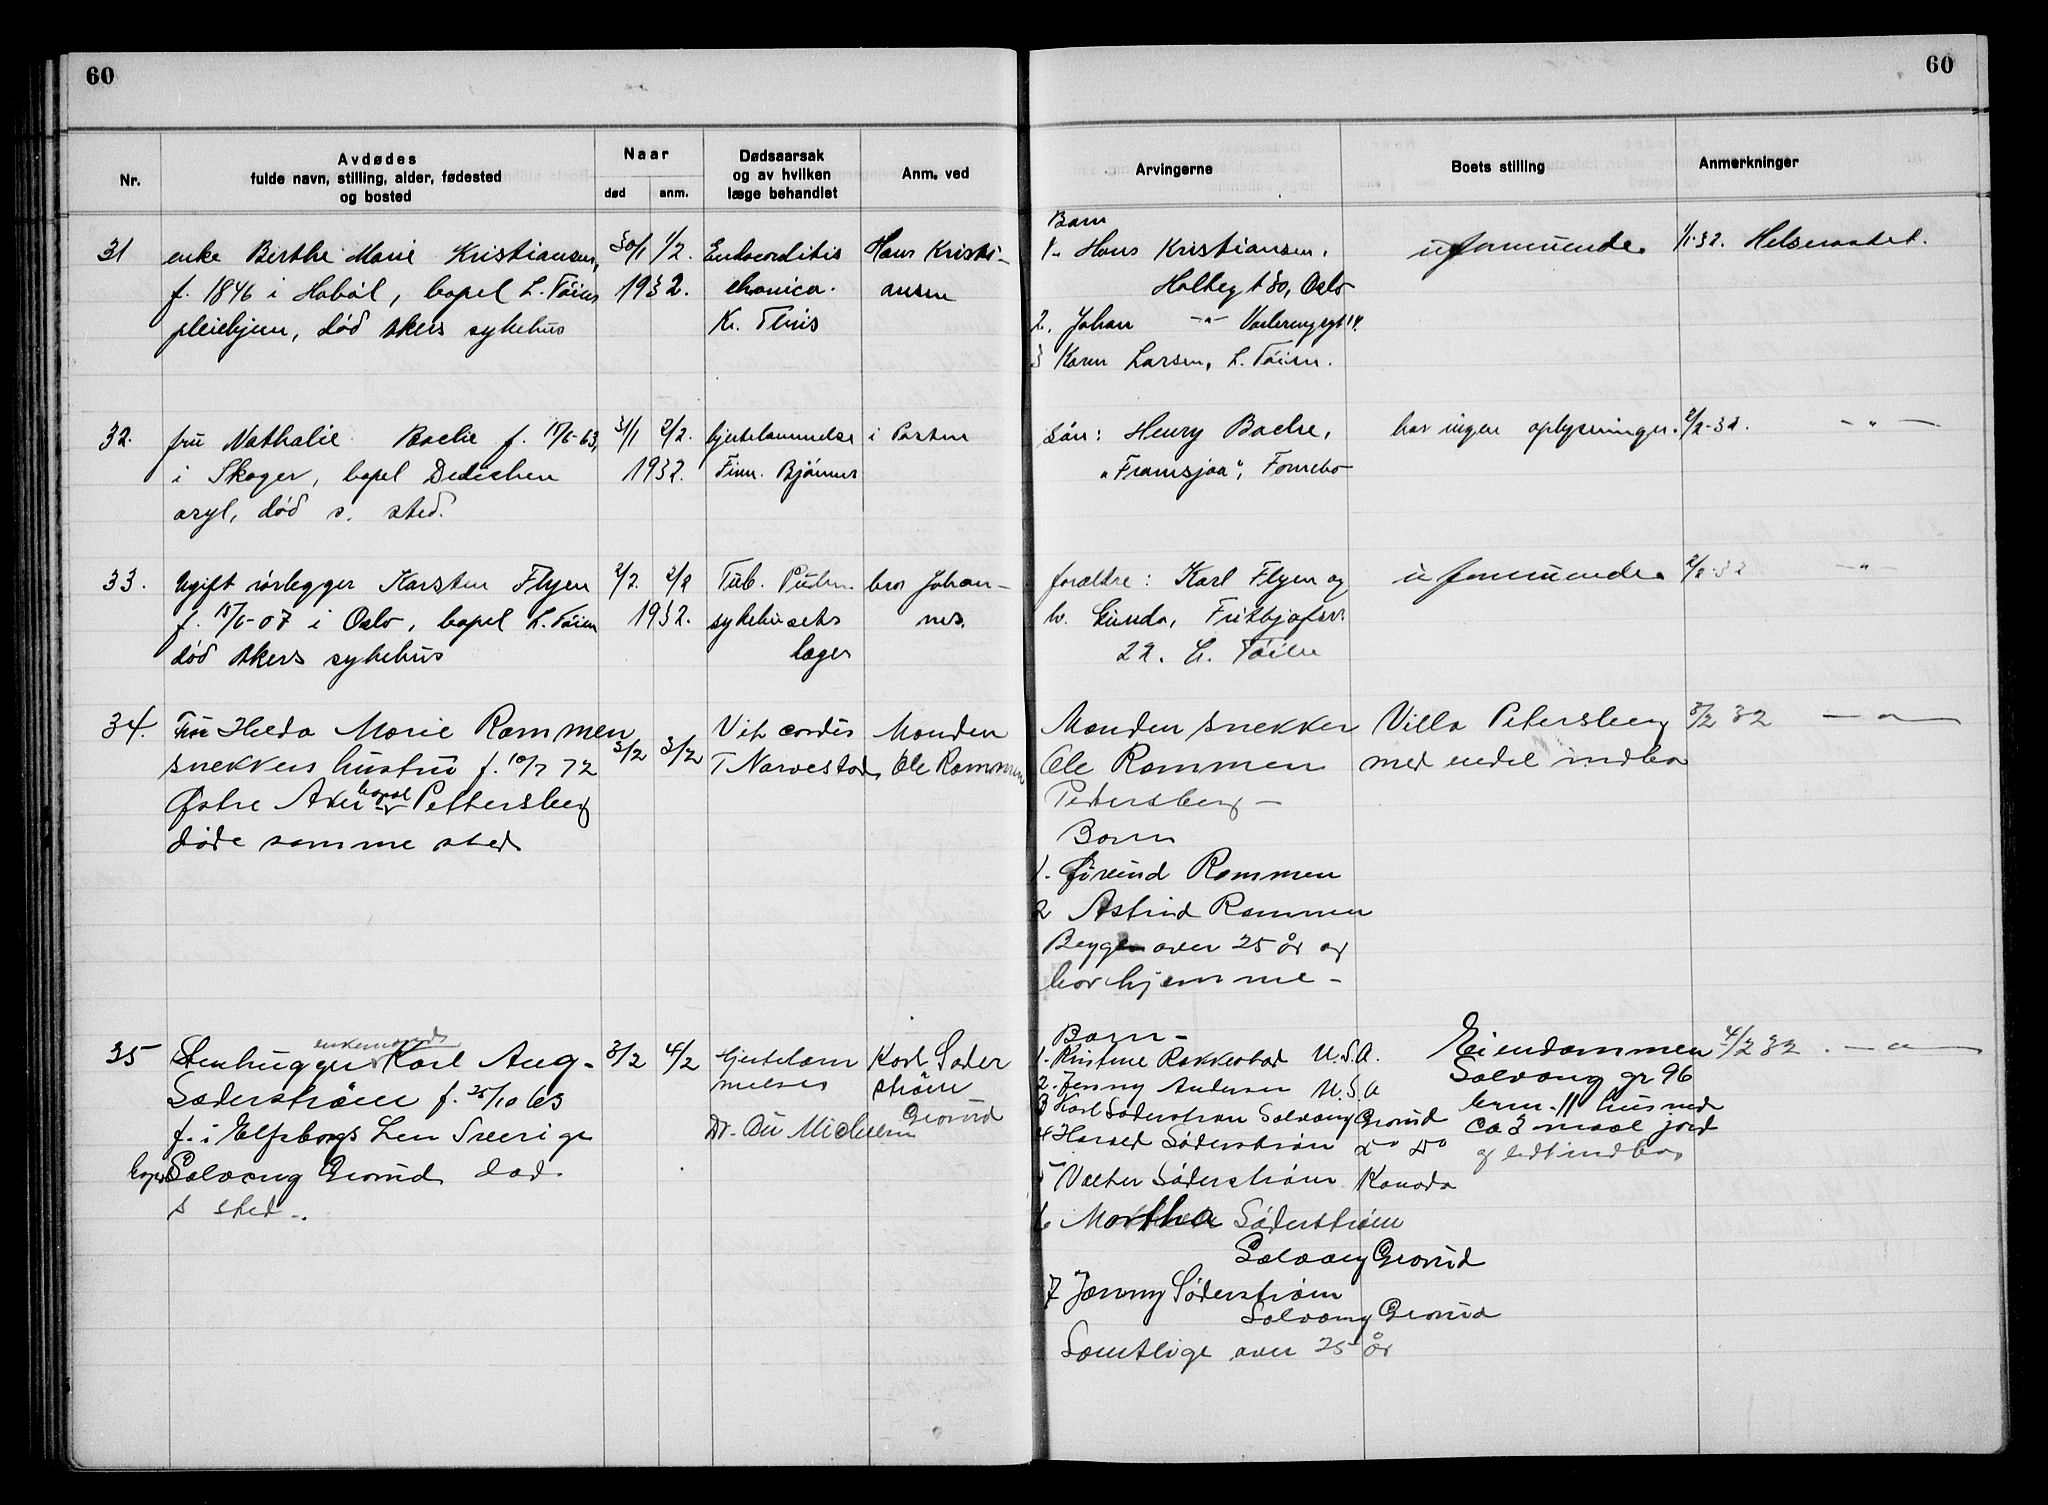 60
60
Nr.
Avdødes
fulde navn, stilling, alder, fødested
og bosted
Naar
død
anm.
Dødsaarsak
og av hvilken
læge behandlet
Anm. ved
Arvingerne
Boets stilling
Anmerkninger
31
enke Berthe Marie Kristiansen,
f. 1846 i Hobøl, bopel L. Tøien
pleiehjem, død Akers sykehus
30/1 1/2.
1932.
Endocorditis
chronica.
Kr. Thiis
Hans Kristi-
ansen
Barn
1. Hans Kristiansen,
Holtegt 30, Oslo
2. Johan -"-
3 Karen Larsen, L. Tøien.
uformuende
Helseraadet.
32.
fru Nathalie Bache f. 63,
i Skoger, bopel Dedichen
asyl, død s. sted.
31/1 2/2.
1932.
hjertelammelse
Finn. Bjørnes
i Posten
Søn: Henry Bache,
"Framsjaa", Fornebo
har ingen oplysninger.
2/2-32.
-"-
33.
Ugift rørlegger Karsten Flyen
f. 07 i Oslo, bopel L. Tøien
død Akers sykehus
2/2. 2/2
1932.
Tub.
sykehusets
læger
bror Johan-
nes.
forældre: Karl Flyen og
h. Gunda,
22. L. Tøien
uformuende
2/2-32
-"-
34.
Fru Hilda Marie Rommen
snekkers hustru f. 10/7 72
Østre Aker bopæl Pettersberg
døde samme sted
3/2 3/2
Vit cordis
T Narvestad
Manden
Ole Rommen
Manden snekker
Ole Rommen
Petersberg -
Barn
1. Øivind Rommen
2 Astrid Rommen
Begge over 25 år og
bor hjemme -
Villa Petersberg
med endel indbo
3/2 32
-"-
35
enkemand
Stenhugger Karl Aug-
Søderstrøm f. 25/10 63
f. i Elfsborgs Len Sverige
bopel Solvang Grorud død.
s sted..
3/2 4/2
Hjertelam
melse
Dr. Michelsen
Karl Søder
strøm
Grorud
Barn -
1. Kristine Rakkestad U.S.A.
2. Jenny Andersen U.S.A
3 Karl Søderstrøm Solvang Grorud
4 Harald Søderstrøm do do
5 Valter Søderstrøm Kanada
6 Martha Søderstrøm
Solvang Grorud
7 Jenny Søderstrøm
Solvang Grorud
Samtlige over 25 år
Eiendommen
Solvang gr 96
brn. 11 hus med
ca 3 maal jord
og lidt indbo
4/2 32. -"-